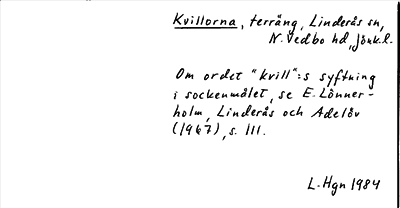 Kvillorna, terräng, Linderås sn,
N. Vedbo hd, Jönk.l.
Om ordet "kvill":s syftning
i sockenmålet, se E. Lönner-
holm, Linderås och Adelöv
(1967), s. 111.
L. Hgn 1984